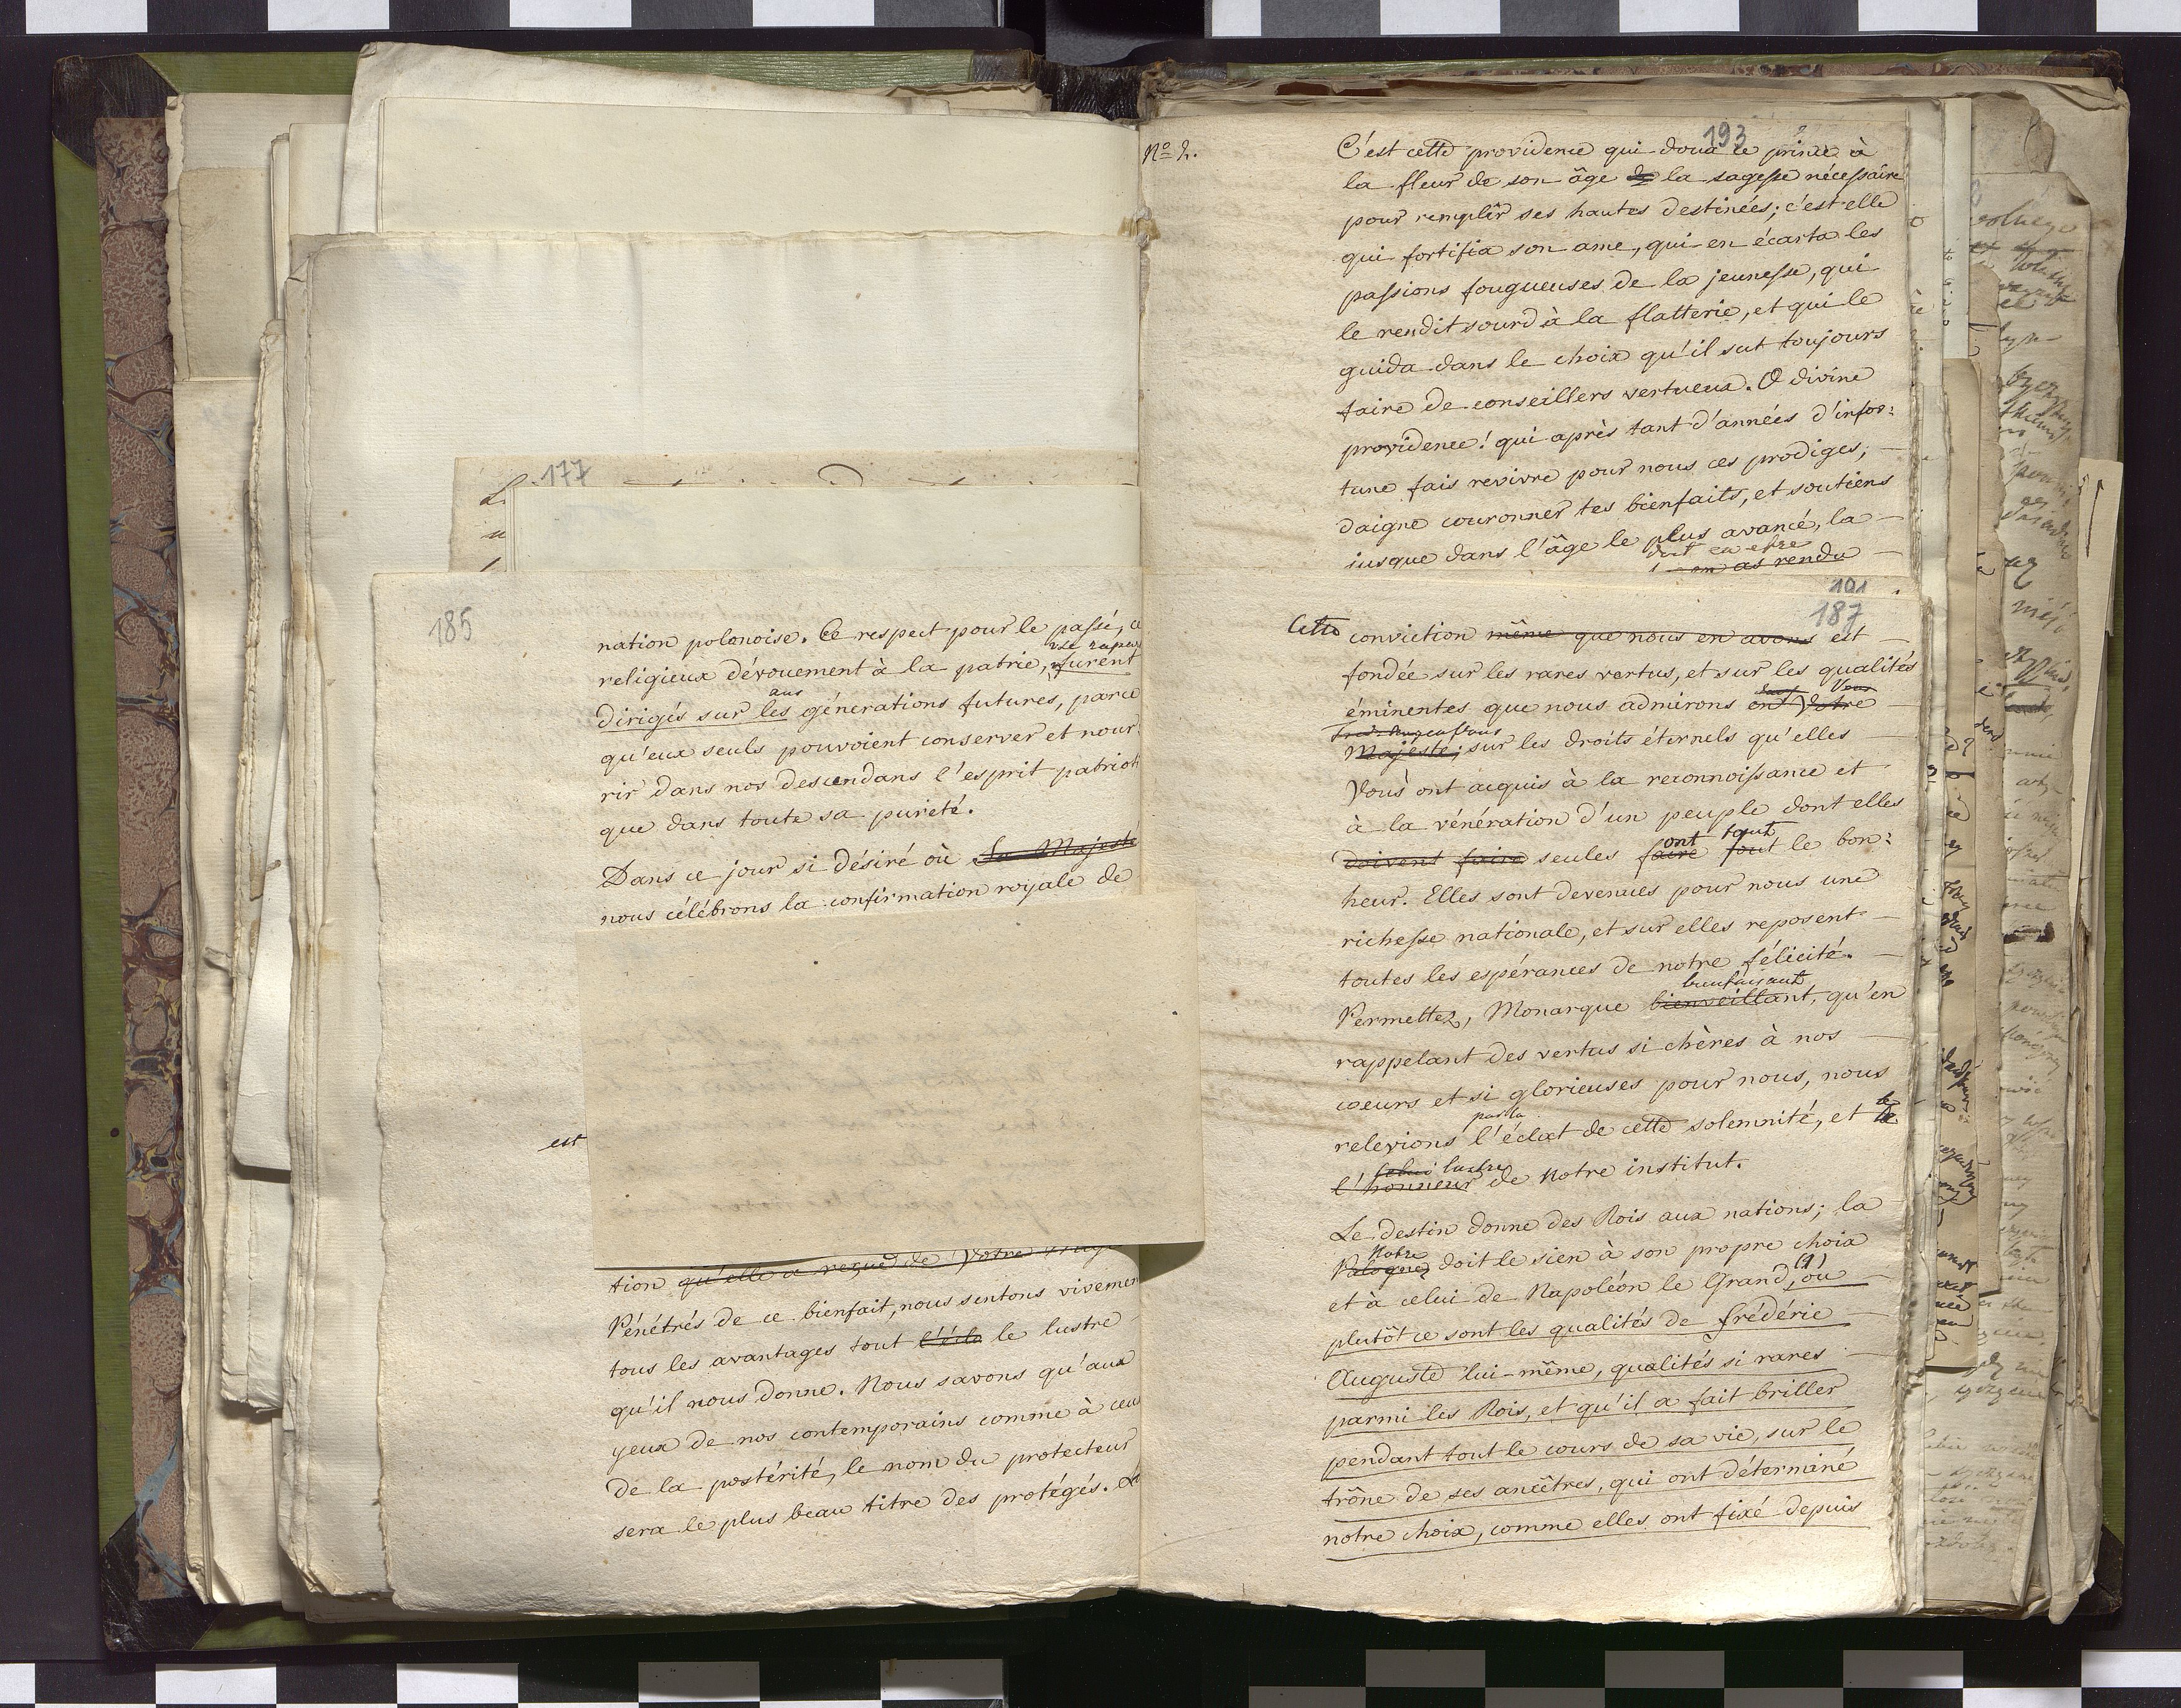 177
185
nation polonoise. Ce respect pour le passé, c
religieux dévouement à la patrie, furent
aux
dirigés sur les générations futures, parce
qu'eux seuls pouvoient conserver et nour:
rir dans nos descendans l'esprit patrioti
que dans toute sa pureté.
Dans ce jour si désiré où Sa Majesté
nous célébrons la confirmation royale de
est
tion qu'elle a reçue de Votre Maje
Pénétrés de ce bienfait, nous sentons vivemen
tous les avantages tout l'écla le lustre
qu'il nous donne. Nous savons qu'aux
yeux de nos contemporains comme à ceux
de la postérité, le nom du protecteur
sera le plus beau titre des protégés. La
193
No 2.
C'est cette providence qui doua ce prince à
la fleur de son âge de la sagesse nécessaire
pour remplir ses hautes destinées; c'est elle
qui fortifia son ame, qui en écarta les
passions fougueuses de la jeunesse, qui
le rendit sourd à la flatterie, et qui le
guida dans le choix qu'il sut toujours
faire de conseillers vertueux. O divine
providence! qui après tant d'années d'infor:
tune fais revivre pour nous ces prodiges;
daigne couronner tes bienfaits, et soutiens
jusque dans l'âge le plus avancé, la
en as rendu
191
187
Cette conviction même que nous en avons est
fondée sur les rares vertus, et sur les qualités
éminentes que nous admirons en Votre
Majesté; sur les droits éternels qu'elles
Vous ont acquis à la reconnoissance et
à la vénération d'un peuple dont elles
ont tout
doivent faire seules faire tout le bon:
heur. Elles sont devenues pour nous une
richesse nationale, et sur elles reposent
toutes les espérances de notre félicité.
bienfaisant
Permettez, Monarque bienveillant, qu'en
rappelant des vertus si chères à nos
coeurs et si glorieuses pour nous, nous
par la
relevions l'éclat de cette solemnité, et le
lustre
l'honneur de notre institut.
Le destin donne des Rois aux nations; la
Notre
Pologne doit le sien à son propre choix
et à celui de Napoléon le Grand, (1) ou
plutôt ce sont les qualités de frédéric
Auguste lui-même, qualités si rares
parmi les Rois, et qu'il a fait briller
pendant tout le cours de sa vie, sur le
trône de ses ancêtres, qui ont déterminé
notre choix, comme elles ont fixé depuis